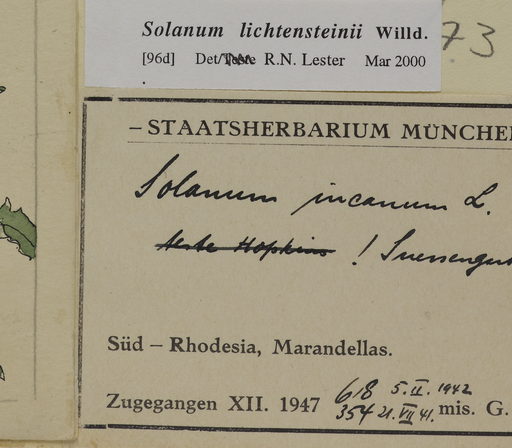 Solanum lichtensteinii Willd.
[96d] Det/Teste R.N. Lester Mar 2000
73
– STAATSHERBARIUM MÜNCHE
Solanum incanum L.
teste Hopkins !
Süd – Rhodesia, Marandellas.
618 5.II. 1942
Zugegangen XII. 1947 354 21.VII 41. mis. G.